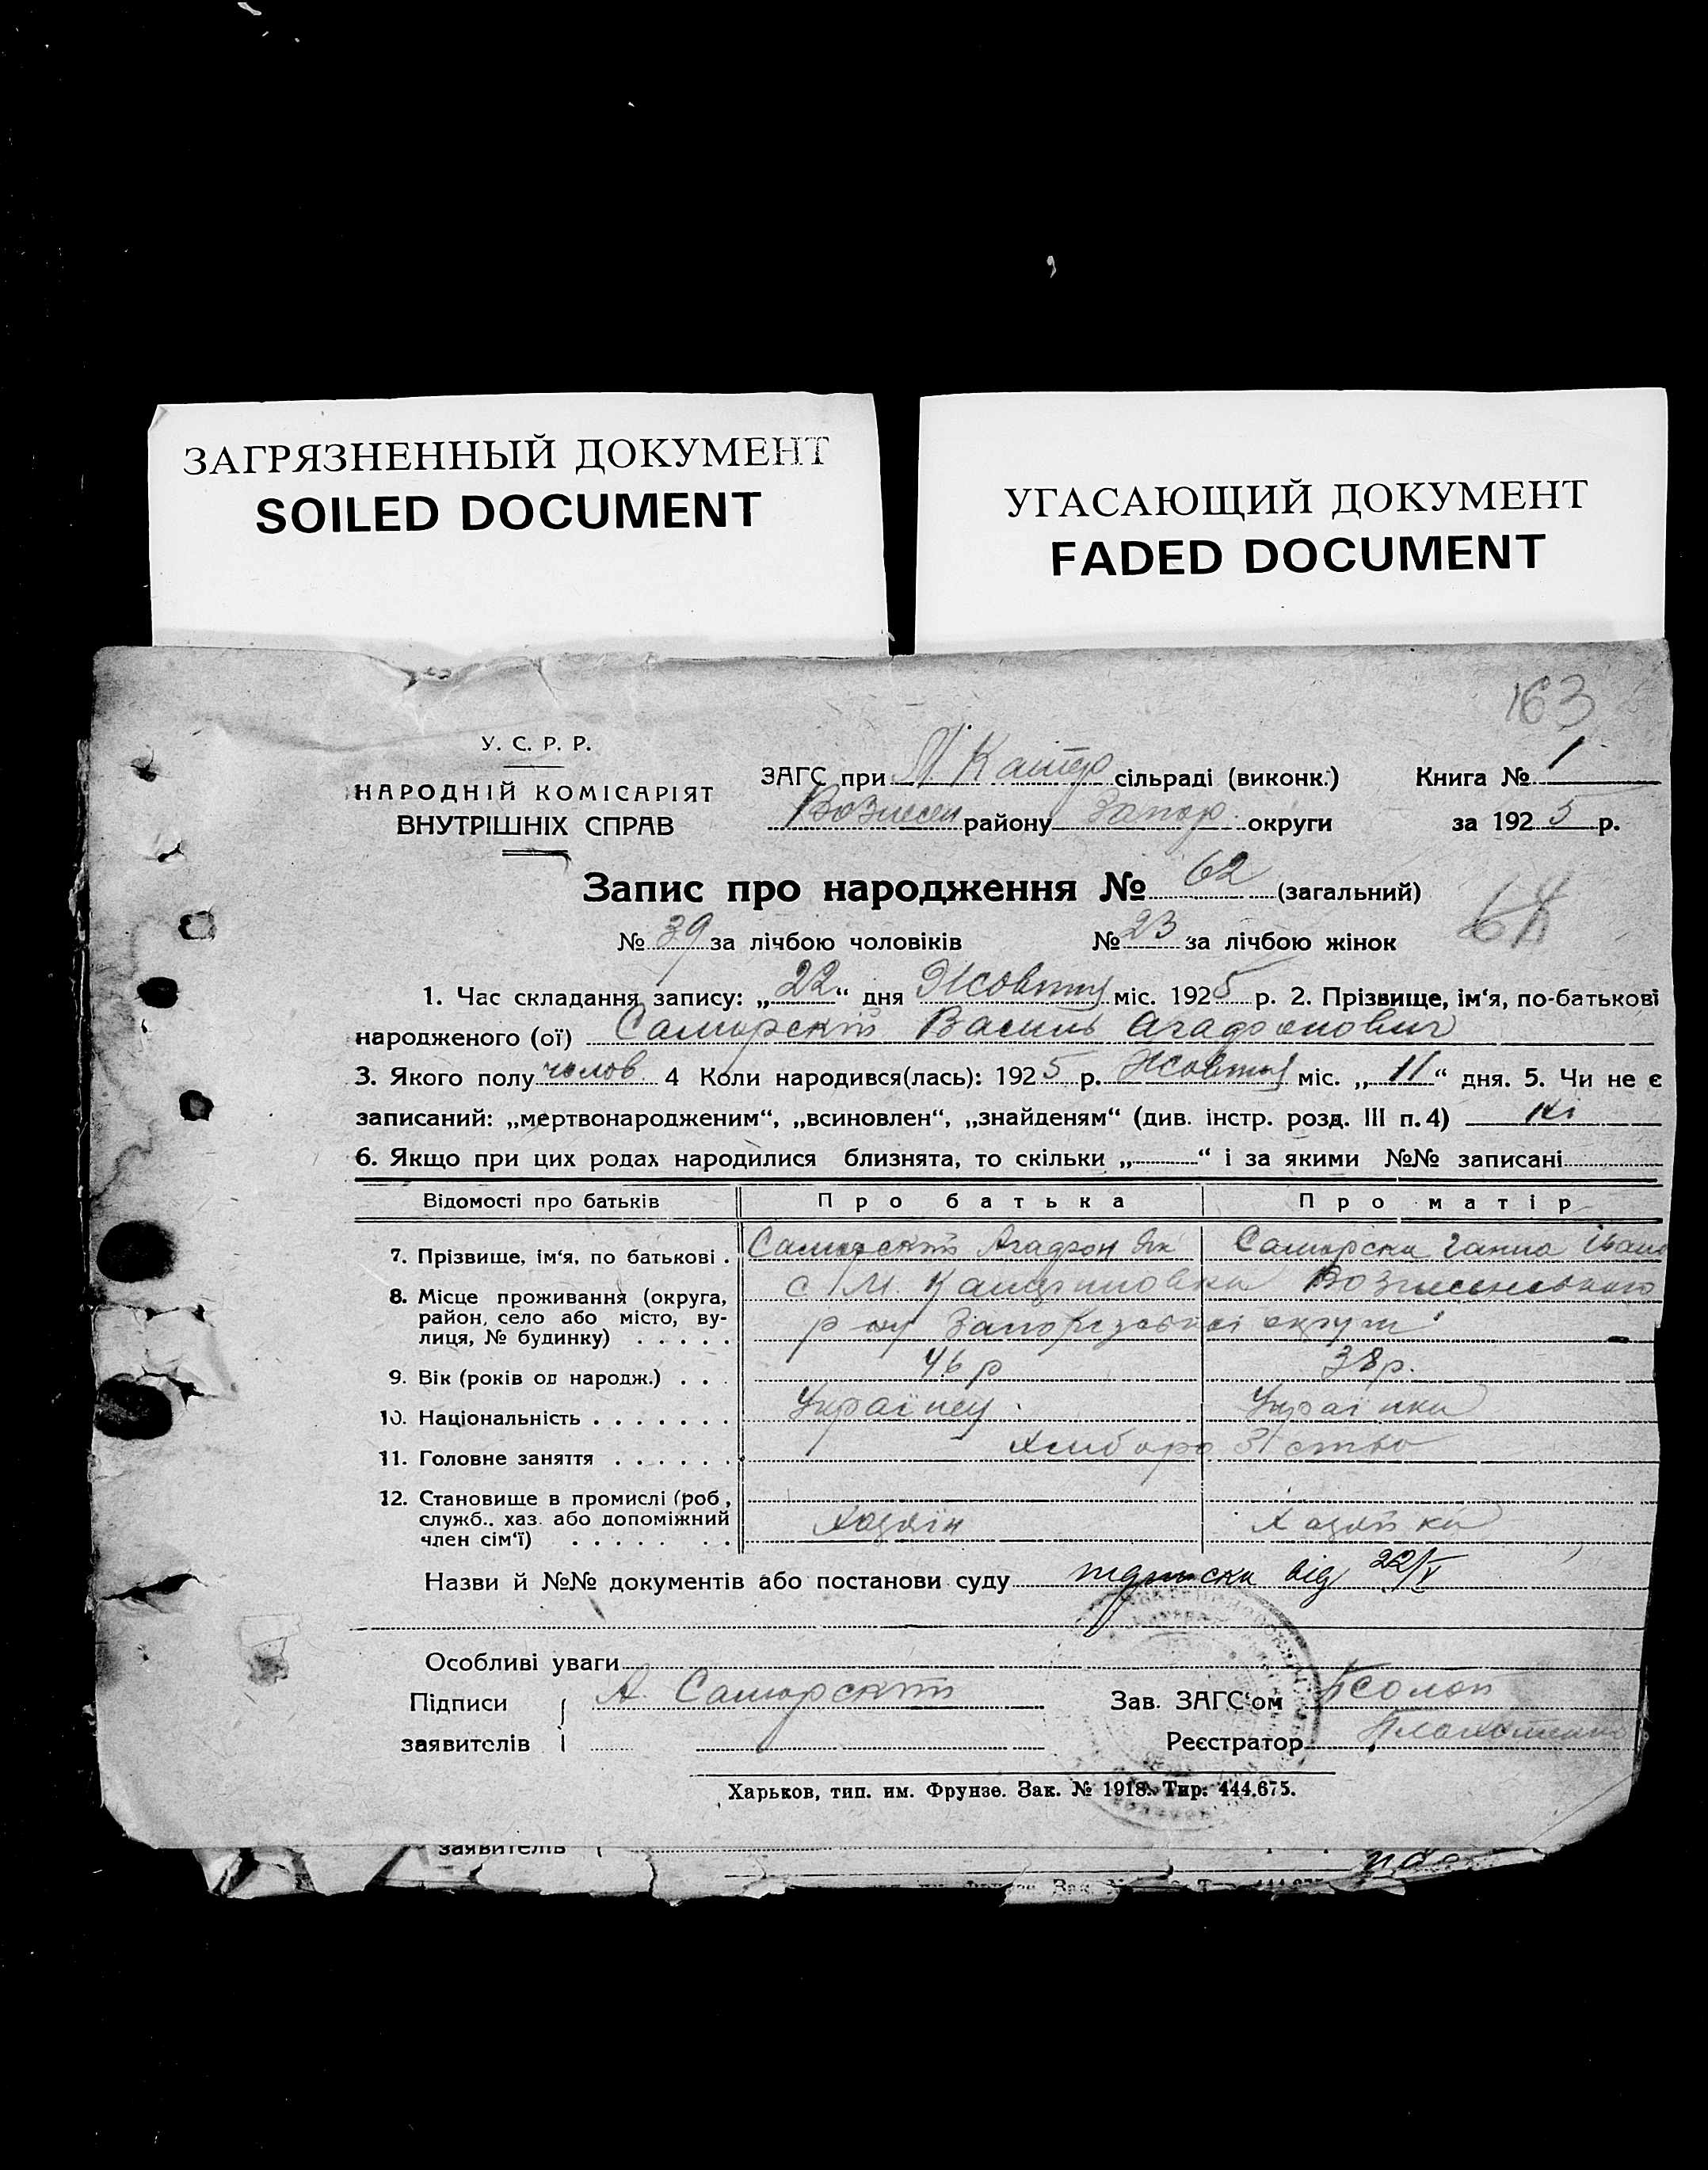 ЗАГРЯЗНЕННЫЙ ДОКУМЕНТ
SOILED DOCUMENT
УГАСАЮЩИЙ ДОКУМЕНТ
FADED DOCUMENT
163
У. С. Р. Р.
НАРОДНІЙ КОМІСАРІЯТ
ВНУТРІШНІХ СПРАВ
ЗАГС при М. сільраді (виконк.) Книга № 1
Вознесен району Запор. округи за 1925 р.
Запис про народження № 62 (загальний)
№ 39 за лічбою чоловіків № 23 за лічбою жінок
1. Час складання запису: „22“ дня Жовтня міс. 1925 р. 2. Прізвище, ім‘я, по-батькові
народженого (ої) Самарскій Василь Агафонович
3. Якого полу чолов 4 Коли народився(лась): 1925 р. Жовтня міс. „11“ дня. 5. Чи не є
записаний: „мертвонародженим“, „всиновлен“, „знайденям“ (див. інстр. розд. III п. 4) ні
6. Якщо при цих родах народилися близнята, то скільки „ “ і за якими №№ записані
Відомості про батьків Про батька Про матір
7. Прізвище, ім‘я, по батькові . Самарскій Агафон Як Самарска Ганна Івано
8. Місце проживання (округа, район, село або місто, вулиця, № будинку) . . . . . с М. Вознесенського
р-ну Запорізської округи
9. Вік (років од народж.) . . . 46 р 38 р.
10. Національність . . . . . . . Українец Українка
11. Головне заняття . . . . . . Хліборобство
12. Становище в промислі (роб,
служб.. хаз. або допоміжний
член сім‘ї) . . . . . . . Хазяїн Хазяйка
Назви й №№ документів або постанови суду підписка від 22/X
Особливі уваги
Підписи А. Самарскій Зав. ЗАГС‘ом
заявителів Реєстратор
Харьков, тип. им. Фрунзе. Зак. № 1918. Тир. 444.675.
заявителів